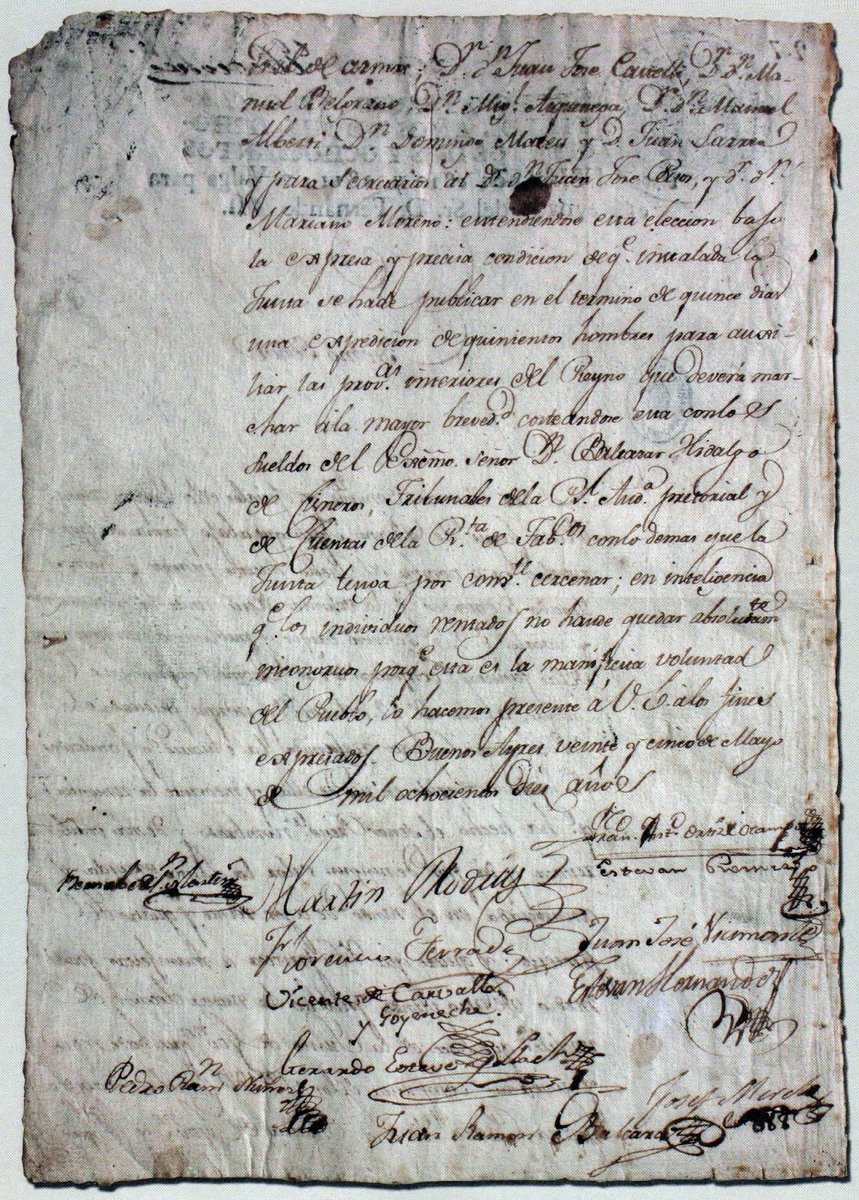 de armas; Dr. Dn. Juan José Castelli, Dr. Dn. Ma-
nuel Belgrano, Dn. Migl. Ascuenega, Dr. Dn. Manuel
Alberti, Dn. Domingo Mateu y D. Juan Larrea
y para Secretarios los Drs. Dn. Juan José Paso, y Dr. Dn.
Mariano Moreno: entendiendose esta eleccion bajo
la expresa y precisa condicion de qe. instalada la
Junta se ha de publicar en el termino de quince dias
una expedicion de quinientos hombres para auxi-
liar las provas. interiores del Reyno que deverá mar-
char á la mayor breved. costeandose esta con los
sueldos del Exmo. Señor Dn. Baltazar Hidalgo
de Cisneros, Tribunales de la Rl. Auda. pretorial y
de Cuentas de la Rta. de Tabcos. con lo demas que la
Junta tenga por cercenar; en inteligencia
qe. los individuos rentados no hande quedar absolutamte
incongruos porqe. esta es la manifiesta voluntad
del Pueblo, lo hacemos presente á V.E. alos fines
expresados. Buenos Ayres veinte y cinco de Mayo
de mil ochocientos dies años
Estevan
Martin Rodrigz
Florencio Terrada
Juan José Viamonte
Vicente de Carvallo
y Goyeneche.
Estevan Hernandez
Gerardo Esteve y Llach
Pedro Ramn
Juan Ramon Balcarce